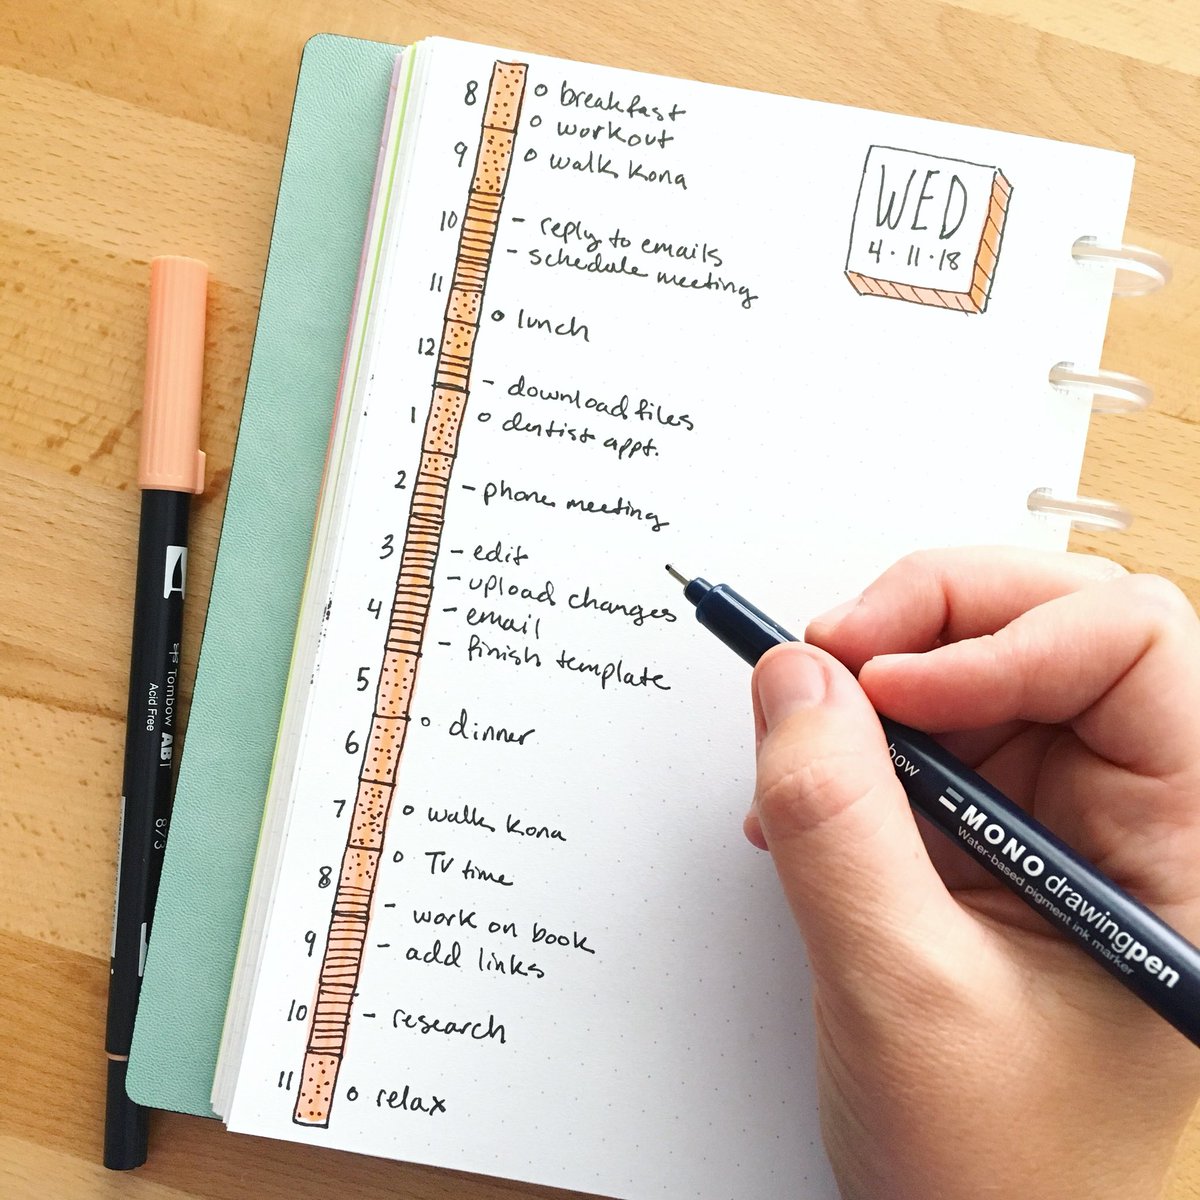 8
o breakfast
o workout
9
o walk kona
10
- reply to emails
- schedule meeting
11
o lunch
12
- download files
1
o dentist appt.
2
- phone meeting
3
- edit
- upload changes
4
- email
- finish template
5
6
o dinner
7
o walk kona
8
o TV time
- work on book
9
- add links
10
- research
11
o relax
WED
4·11·18
Tombow ABT
Acid Free
873
bow
MONO drawingpen
Water-based pigment ink marker